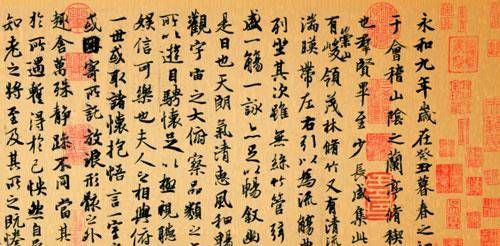 永和九年歲在癸丑暮春之
于會稽山陰之蘭亭脩稧
也羣賢畢至少長咸集此
有崇山峻領茂林脩竹又有清流
湍暎帶左右引以為流觴曲
列坐其次雖無絲竹管弦
盛一觴一詠亦足以暢敘幽
是日也天朗氣清惠風和暢
觀宇宙之大俯察品類之
所以遊目騁懷足以極視聽
娛信可樂也夫人之相與俯
一世或取諸懷抱悟言一室
或因寄所託放浪形骸之外
趣舍萬殊靜躁不同當其
於所遇蹔得於己怏然自
知老之將至及其所之既惓